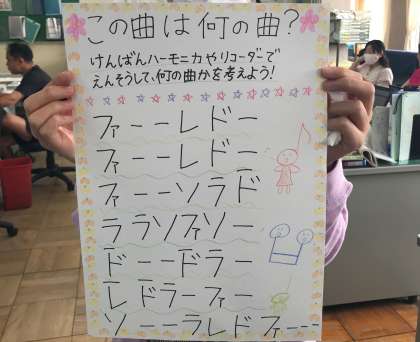 この曲は何の曲?
けんばんハーモニカやリコーダーで
えんそうして、何の曲かを考えよう!
ファーーレドー
ファーーレドー
ファーーソラド
ララソファソー
ドーードラー
レドラーファー
ソーーラレドファーーー